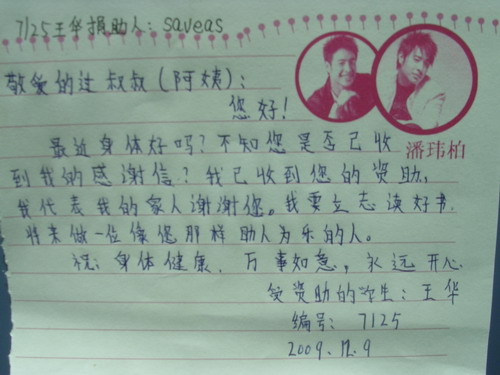 7125王华捐助人：saveas
敬爱的过叔叔（阿姨）：
您好！
潘玮柏
最近身体好吗？不知您是否已收
到我的感谢信？我已收到您的资助，
我代表我的家人谢谢你。我要立志读好书，
将来做一位像您那样助人为乐的人。
祝：身体健康、万事如意，永远开心
受资助的学生：王华
编号：7125
2009.12.9